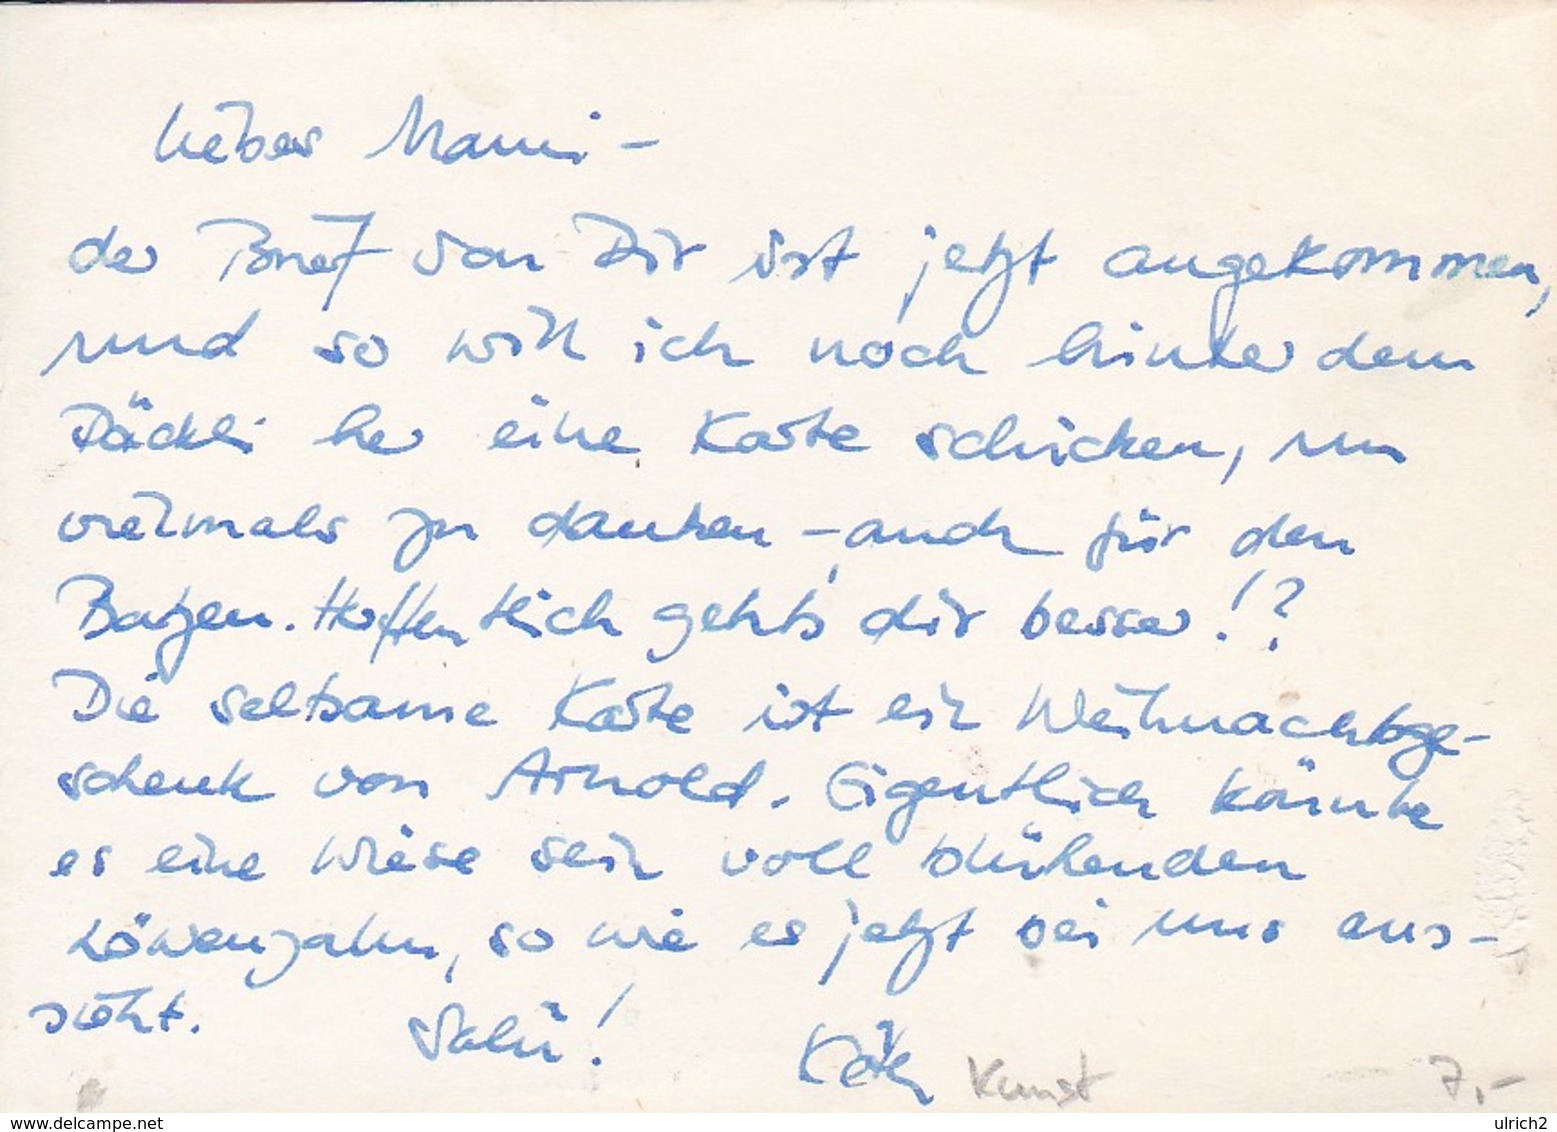 Liebes Mami –
der Brief von Dir ist jetzt angekommen,
und so will ich noch hinter dem
Päckli her eine Karte schicken, um
vielmals zu danken – auch für den
Batzen. Hoffentlich geht's dir besser!?
Die seltsame Karte ist ein Weihnachtsge-
schenk von Arnold. Eigentlich könnte
es eine Wiese sein voll blühenden
Löwenzahn, so wie es jetzt bei uns aus-
sieht. Salü!
Kunst 7,-
delcampe.net
ulrich2